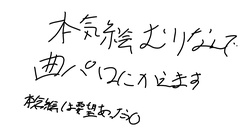 本気絵むりなんで
曲パロにかえます
本気絵は要望あったら